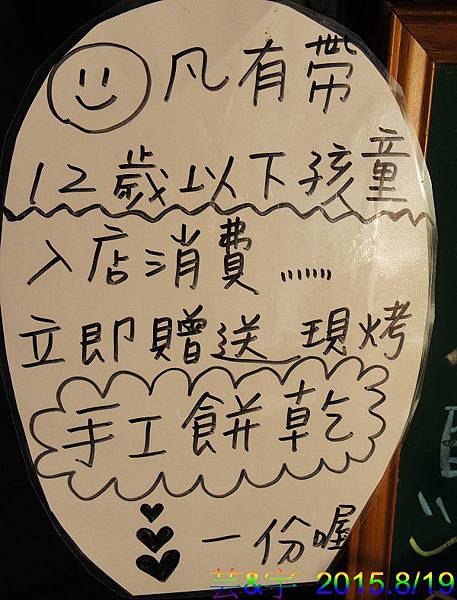 凡有帶
12歲以下孩童
入店消費......
立即贈送 現烤
手工餅乾
一份喔
芸&宇 2015.8/19